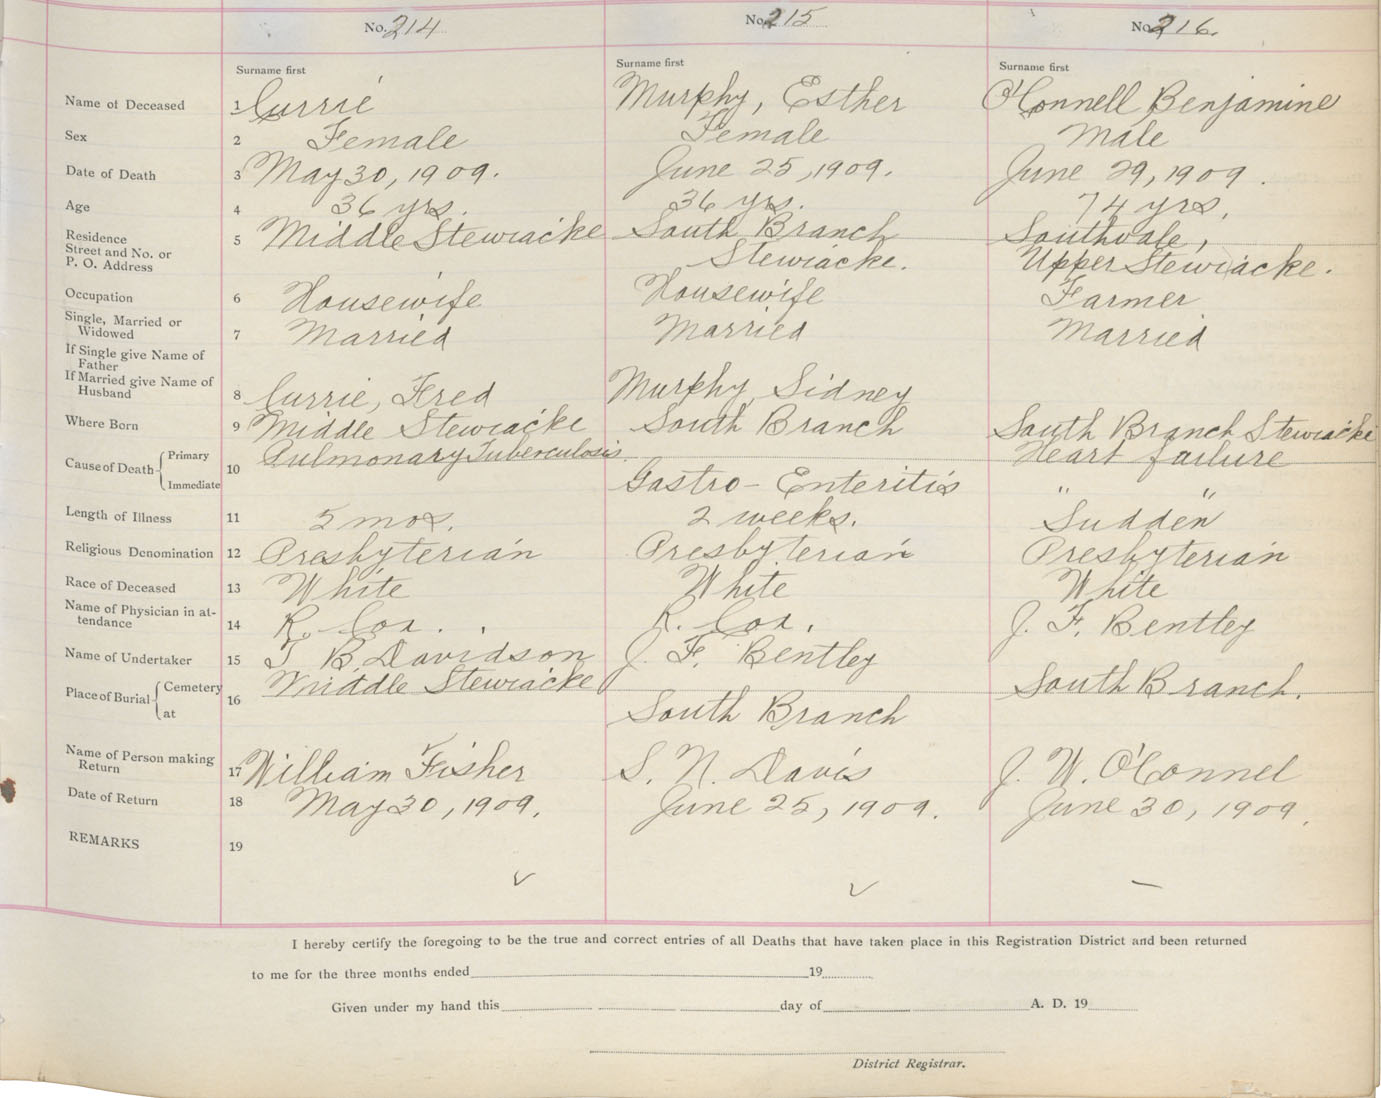 No. 214 No. 215 No. 216.
Surname first Surname first Surname first
Name of Deceased 1 Currie Murphy, Esther O'Connell Benjamine
Sex 2 Female Female Male
Date of Death 3 May 30, 1909. June 25, 1909. June 29, 1909.
Age 4 36 yrs. 36 yrs. 74 yrs.
Residence
Street and No. or 5 Middle Stewiacke South Branch Southvale,
P. O. Address Stewiacke. Upper Stewiacke.
Occupation 6 Housewife Housewife Farmer
Single, Married or
Widowed 7 Married Married Married
If Single give Name of
Father
If Married give Name of
Husband 8 Currie, Fred Murphy, Sidney
Where Born 9 Middle Stewiacke South Branch South Branch Stewiacke
Cause of Death Primary 10 Pulmonary Tuberculosis. Heart failure
Immediate Gastro-Enteritis " "
Length of Illness 11 5 mos. 2 weeks. Sudden
Religious Denomination 12 Presbyterian Presbyterian Presbyterian
Race of Deceased 13 White White White
Name of Physician in at-
tendance 14 R. Cox. R. Cox. J. F. Bentley
Name of Undertaker 15 T B. Davidson J. F. Bentley
Place of Burial Cemetery 16 Middle Stewiacke South Branch.
at South Branch
Name of Person making
Return 17 William Fisher S. N. Davis J. W. O'Connel
Date of Return 18 May 30, 1909. June 25, 1909. June 30, 1909.
REMARKS 19
I hereby certify the foregoing to be the true and correct entries of all Deaths that have taken place in this Registration District and been returned
to me for the three months ended 19
Given under my hand this day of A. D. 19
District Registrar.